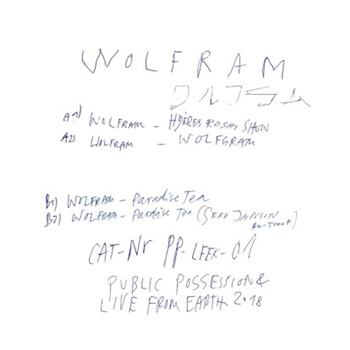 WOLFRAM
ワルフラム
A1) WOLFRAM - HYÈRES ROSAI SHOW
A2) WOLFRAM - WOLFGRAM
B1) WOLFRAM - Paradise Tea
B2) WOLFRAM - Paradise Tea (GERD JANSON
Re-Treat)
CAT-Nr PP-LFEX-01
PUBLIC POSSESSION &
LIVE FROM EARTH 2018